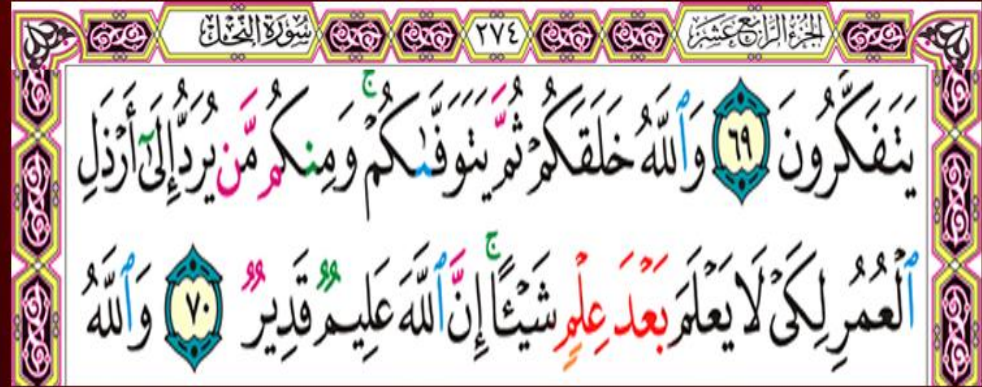 الجزء الرابع عشر ٢٧٤ سُورَةُ النَّحْلِ
يَتَفَكَّرُونَ ٦٩ وَٱللَّهُ خَلَقَكُمْ ثُمَّ يَتَوَفَّىٰكُمْۚ وَمِنكُم مَّن يُرَدُّ إِلَىٰٓ أَرْذَلِ
ٱلْعُمُرِ لِكَىْ لَا يَعْلَمَ بَعْدَ عِلْمٍ شَيْـًٔاۚ إِنَّ ٱللَّهَ عَلِيمٌ قَدِيرٌ ٧٠ وَٱللَّهُ